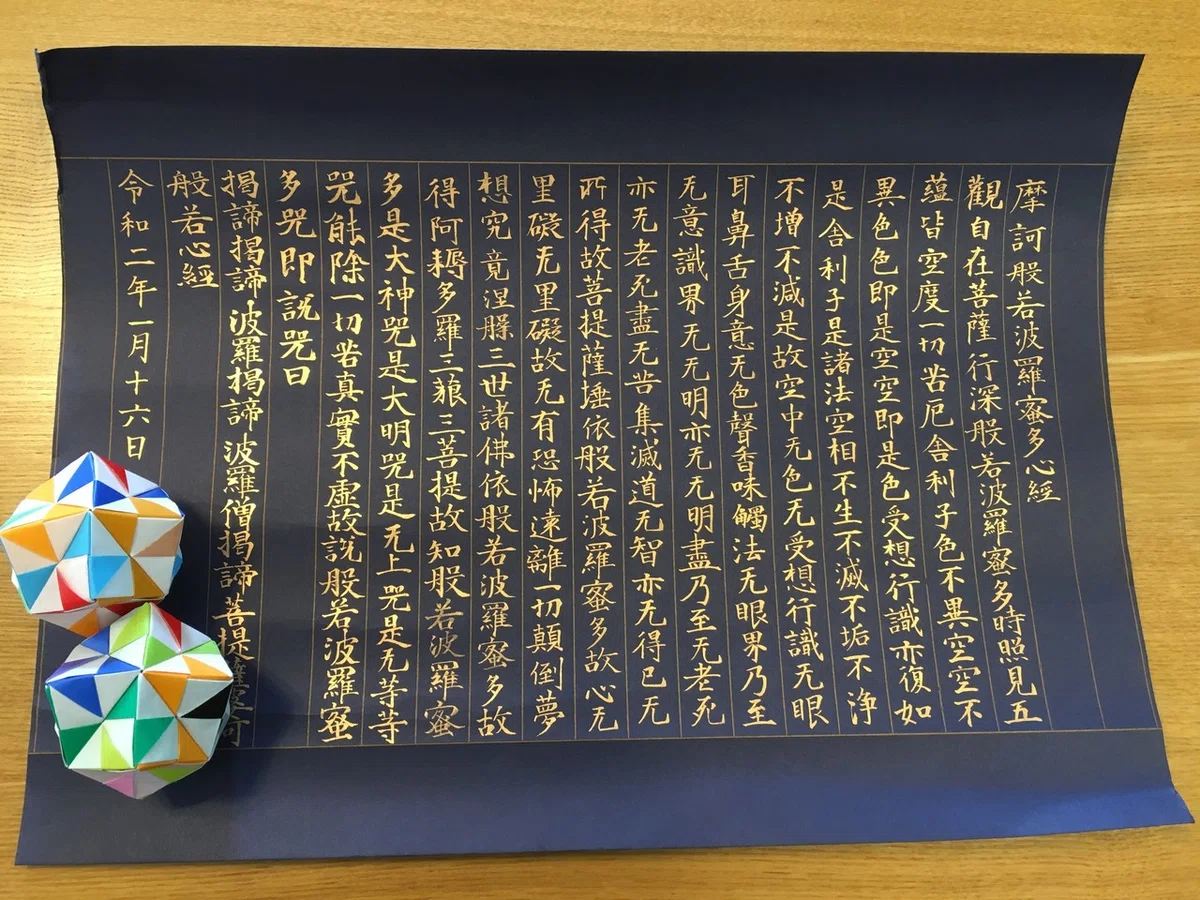 摩訶般若波羅蜜多心經
觀自在菩薩行深般若波羅蜜多時照見五
蘊皆空度一切苦厄舍利子色不異空空不
異色色即是空空即是色受想行識亦復如
是舎利子是諸法空相不生不滅不垢不浄
不增不減是故空中无色无受想行識无眼
耳鼻舌身意无色聲香味觸法无眼界乃至
无意識界无无明亦无无明盡乃至无老死
亦无老死盡无苦集滅道无智亦无得已无
所得故菩提薩埵依般若波羅蜜多故心无
里礙无里礙故无有恐怖遠離一切顛倒夢
想究竟涅槃三世諸佛依般若波羅蜜多故
得阿耨多羅三藐三菩提故知般若波羅蜜
多是大神咒是大明咒是无上咒是无等等
咒能除一切苦真實不虛故說般若波羅蜜
多咒即說咒曰
揭諦揭諦波羅揭諦波羅僧揭諦菩提
般若心經
令和二年一月十六日